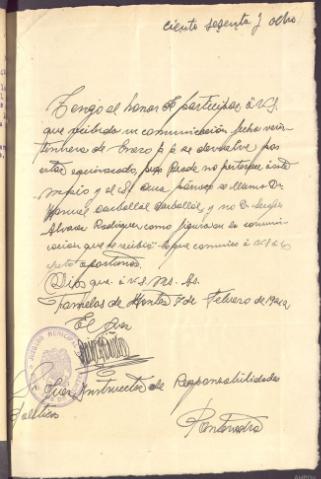 ciento sesenta y ocho
Tengo el honor de participar á V.S.
que recibida su comunicación fecha vein
tinueve de Enero p.p. se devuelve por
estar equivocado, pues Sende no pertenece á este
y el Sr. Cura párroco se llama Dn
Manuel Carballal Carballal, y no Dn Sergio
Alvarez Rodriguez como figuraba en la comuni-
cacion que se recibió lo que comunico á V.S. á los
oportunos.
Dios gue. á V.S. ms. as.
de Montes 7 de Febrero de
El Juez
Juez Instructor de Responsabilidades
Politicas
Pontevedra